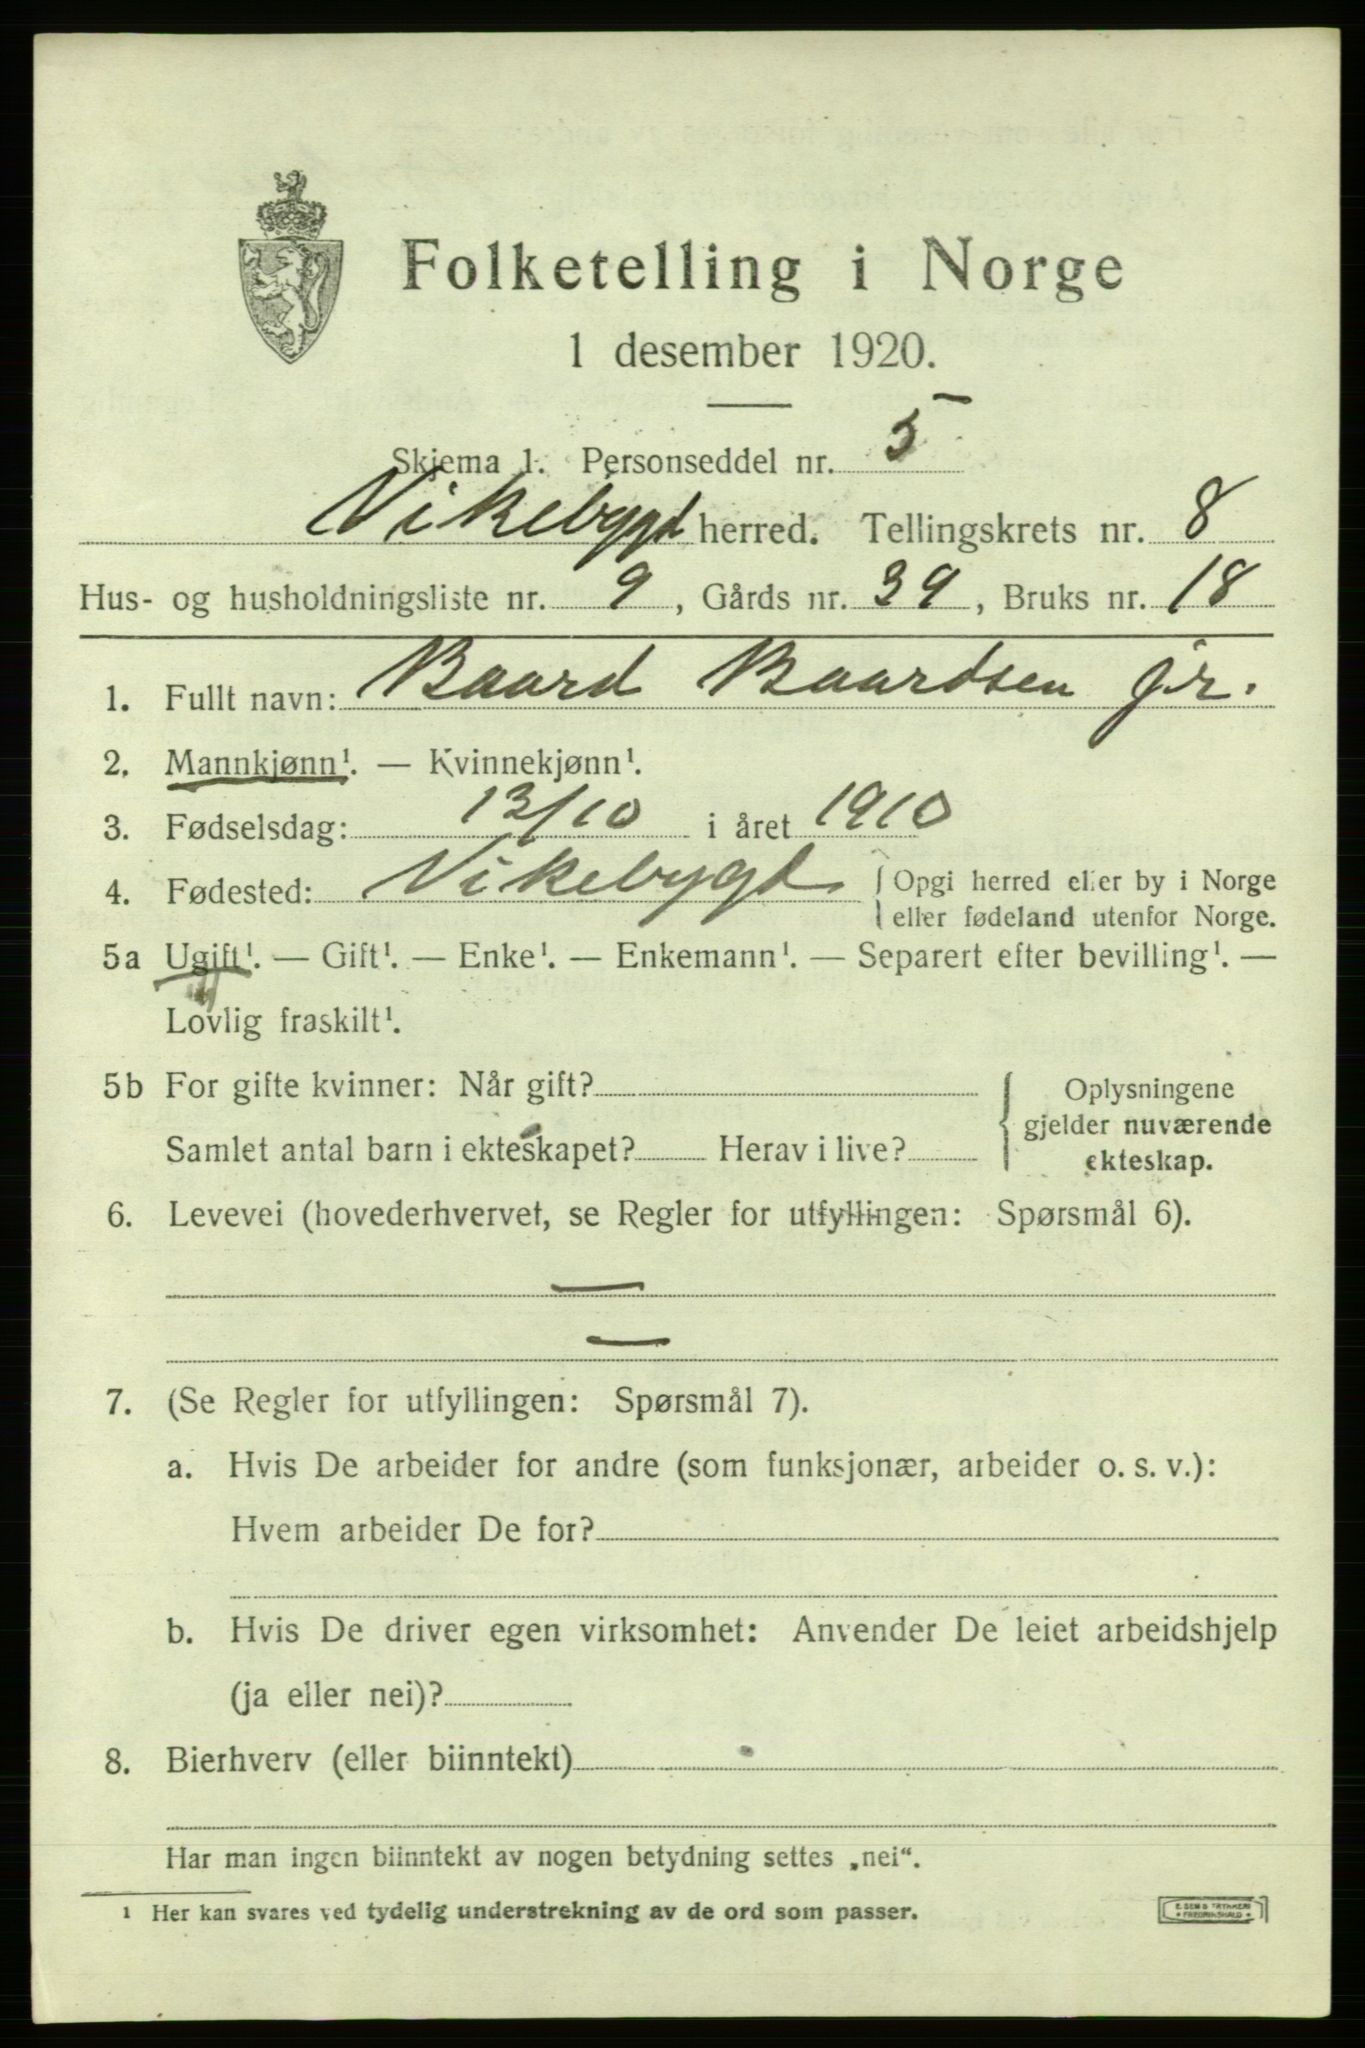 Folketelling i Norge
1 desember 1920.
Skjema 1. Personseddel nr. 5
Vikebygd herred. Tellingskrets nr. 8
Hus- og husholdningsliste nr. 9, Gårds nr. 39, Bruks nr. 18
1. Fullt navn: Baard Baardsen jr.
2. Mannkjønn¹. — Kvinnekjønn¹.
3. Fødselsdag: 13/10 i året 1910
4. Fødested: Vikebygd { Opgi herred eller by i Norge
eller fødeland utenfor Norge.
5a Ugift¹. — Gift¹. — Enke¹. — Enkemann¹. — Separert efter bevilling¹. —
Lovlig fraskilt¹.
5b For gifte kvinner: Når gift? { Oplysningene
gjelder nuværende
Samlet antal barn i ekteskapet? Herav i live?
ekteskap.
6. Levevei (hovederhvervet, se Regler for utfyllingen: Spørsmål 6).
—
—
7. (Se Regler for utfyllingen: Spørsmål 7).
a. Hvis De arbeider for andre (som funksjonær, arbeider o. s. v.):
Hvem arbeider De for?
b. Hvis De driver egen virksomhet: Anvender De leiet arbeidshjelp
(ja eller nei)?
8. Bierhverv (eller biinntekt)
Har man ingen biinntekt av nogen betydning settes „nei“.
¹ Her kan svares ved tydelig understrekning av de ord som passer.
FREDRIKSHALD